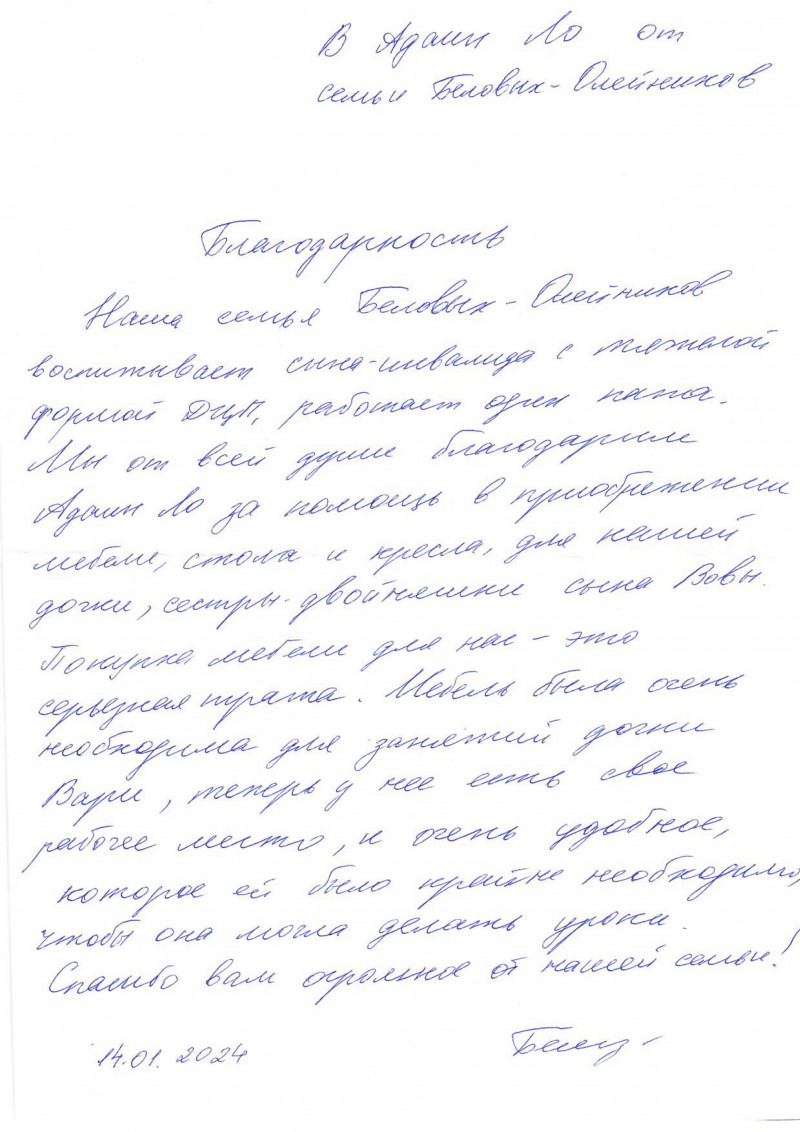 В Адвин Ло от
семьи Беловых-Олейников
Благодарность
Наша семья Беловых-Олейников
воспитывает сына-инвалида с тяжелой
формой ДЦП, работает один папа.
Мы от всей души благодарим
Адвин Ло за помощь в приобретении
мебели, стола и кресла, для нашей
дочки, сестры-двойняшки сына Вовы.
Покупка мебели для нас - это
серьезная трата. Мебель была очень
необходима для занятий дочки
Вари, теперь у нее есть свое
рабочее место, и очень удобное,
которое ей было крайне необходимо,
чтобы она могла делать уроки.
Спасибо вам огромное от нашей семьи!
14.01.2024